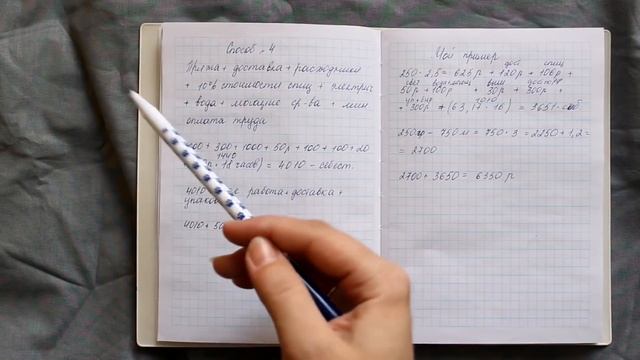 Способ 4
Пряжа + доставка + расходники
+ 10% стоимости спиц + электрич
+ вода + моющие ср-ва + мин
оплата труда
00 + 300 + 1000 + 50р + 100 + 100 + 20
1440
18 часов) = 4010 - себест.
4010 работа + доставка +
упаков
4010 + 50
Мой пример
дост спиц
250 · 2,5 = 625р + 120р + 106р +
50р + 100р + 30р + 300р +
+ 300р + (63,17 · 16) = 3651
250гр - 750м = 750 · 3 = 2250 · 1,2 =
= 2700
2700 + 3650 = 6350 р